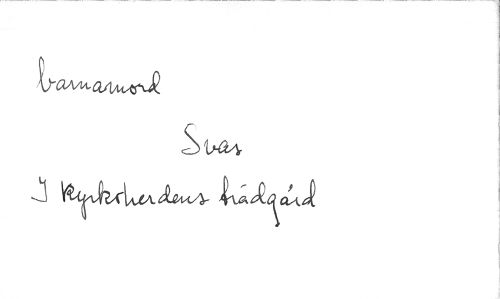 barnamord
Svas
I kyrkoherdens trädgård